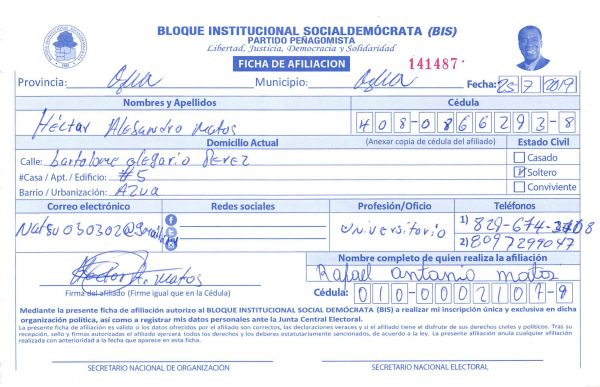 BLOQUE INSTITUCIONAL SOCIALDEMÓCRATA (BIS)
PARTIDO PEÑAGOMISTA
Libertad, Justicia, Democracia y Solidaridad
FICHA DE AFILIACION
141487
Provincia: Azua Municipio: Azua Fecha: 25-7/2019
Nombres y Apellidos Cédula
Héctar Alesandro Matos 408-0866293-8
Domicilio Actual (Anexar copia de cédula del afiliado) Estado Civil
Calle: bartolome olegario Perez Casado
#Casa / Apt. / Edificio: #5 Soltero
Barrio / Urbanización: Azua Conviviente
Correo electrónico Redes sociales Profesión/Oficio Teléfonos
universitario 1) 829-674-
2) 8097299047
Héctor A. Matos
Firma del afiliado (Firme igual que en la Cédula)
Nombre completo de quien realiza la afiliación
Rafael antonio matos
Cédula: 010-0002107-9
Mediante la presente ficha de afiliación autorizo al BLOQUE INSTITUCIONAL SOCIAL DEMÓCRATA (BIS) a realizar mi inscripción única y exclusiva en dicha
organización política, así como a registrar mis datos personales ante la Junta Central Electoral.
La presente ficha de afiliación es válida si los datos ofrecidos por el afiliado son correctos, las declaraciones veraces y si el afiliado tiene el disfrute de sus derechos civiles y políticos. Tras su
recepción, sello y firmas autorizadas el afiliado ejercerá todos los derechos y los deberes estatutariamente sancionados, de acuerdo a la ley. La presente afiliación anula cualquier afiliación
realizada con anterioridad a la fecha que aparece en esta ficha.
SECRETARIO NACIONAL DE ORGANIZACIÓN SECRETARIO NACIONAL ELECTORAL